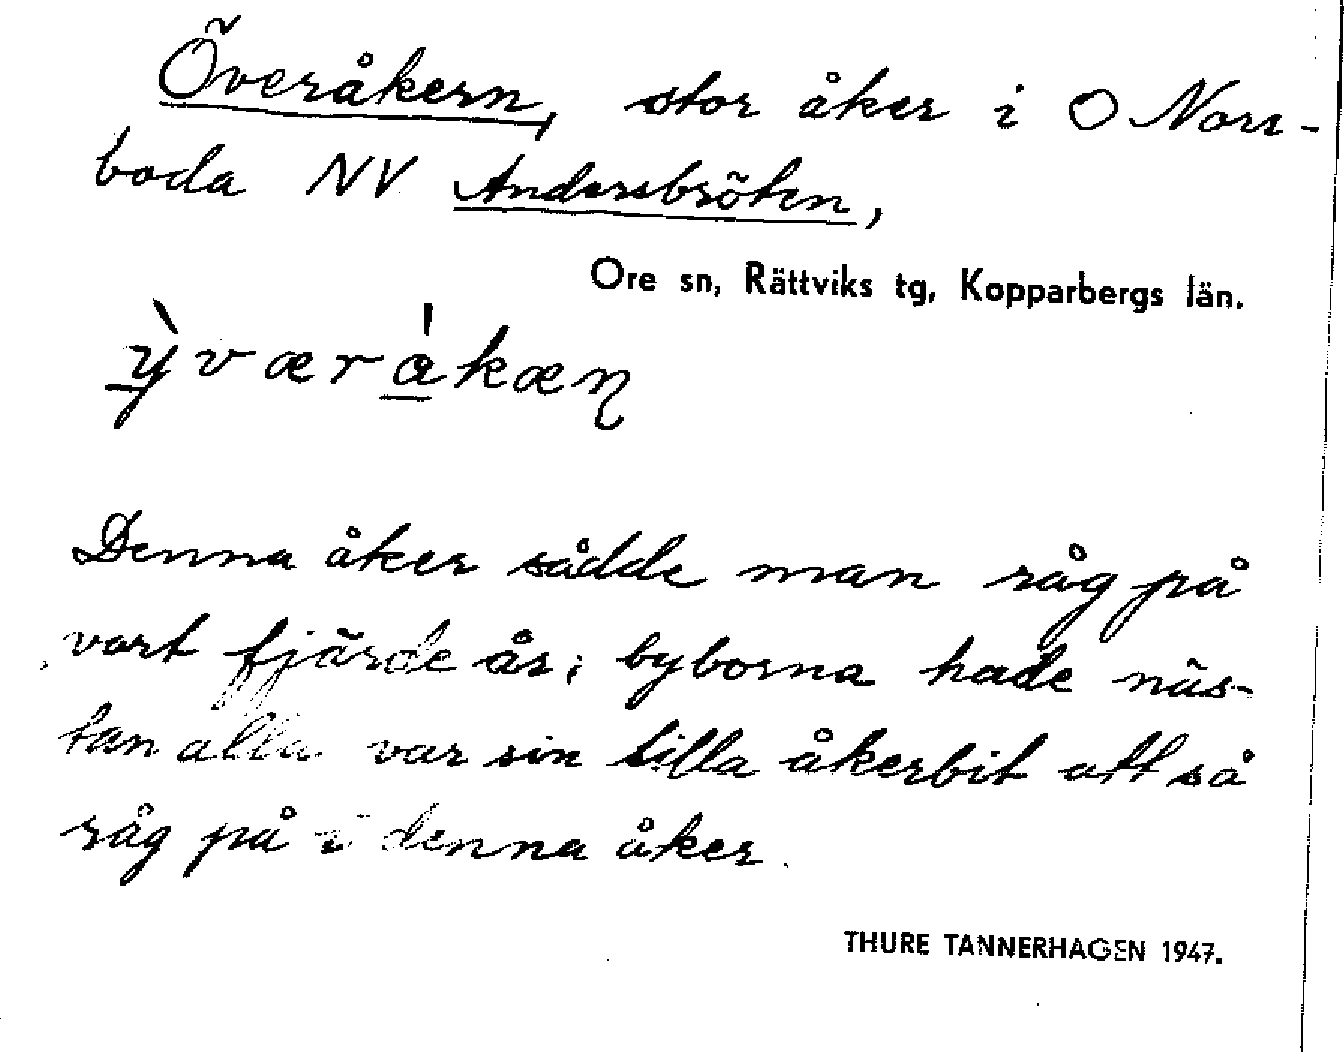 Överåkern, stor åker i O Norr-
boda NV Andersbröten,
Ore sn, Rättviks tg, Kopparbergs län.
ỳværákæɳ
Denna åker sådde man råg på
vart fjärde år; byborna hade näs-
tan alla var sin lilla åkerbit att så
råg på i denna åker.
THURE TANNERHAGEN 1947.